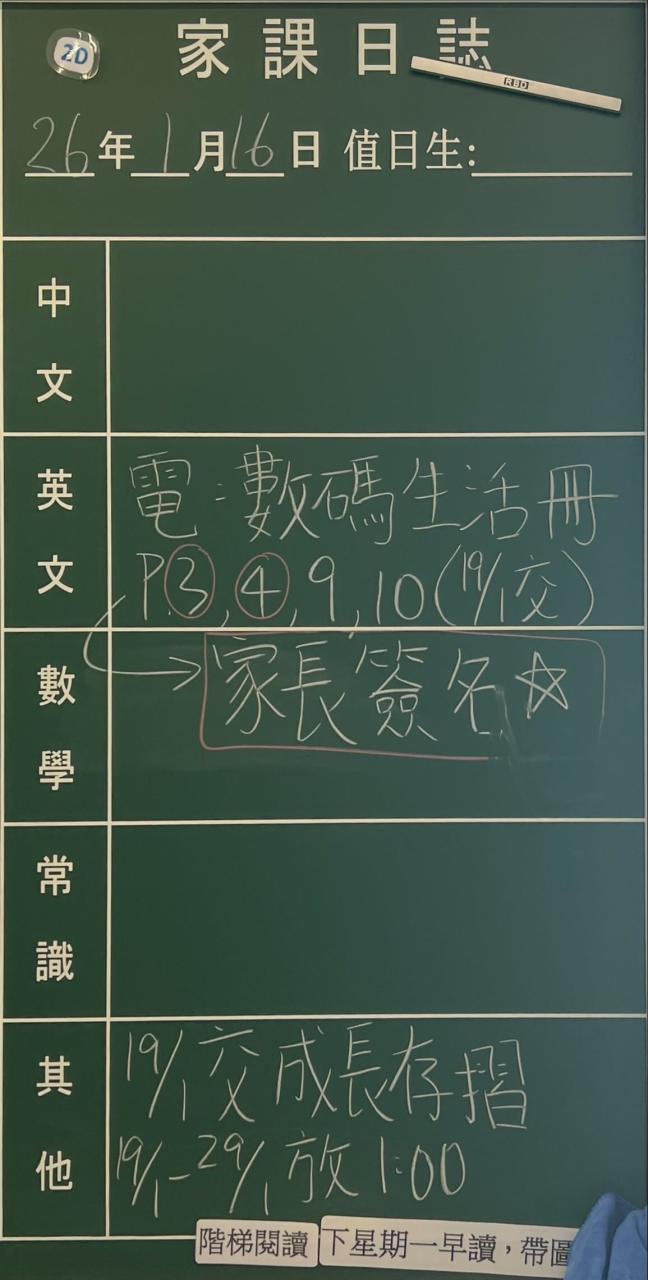 2D
家課日誌
RBD
26年1月16日 值日生:
中文
英文
電:數碼生活冊
P.3,4,9,10(19/1交)
數學
家長簽名☆
常識
其他
19/1交成長存摺
19/1-29/1放1:00
階梯閱讀
下星期一早讀，帶圖